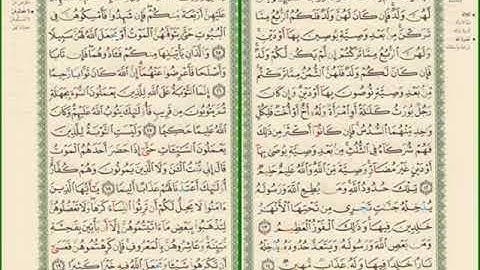 لَهُنَّ وَلَدٌ فَإِن كَانَ لَهُنَّ وَلَدٌ فَلَكُمُ الرُّبُعُ مِمَّا
تَرَكْنَ مِنۢ بَعْدِ وَصِيَّةٍ يُوصِينَ بِهَا أَوْ دَيْنٍ وَلَهُنَّ
الرُّبُعُ مِمَّا تَرَكْتُمْ إِن لَّمْ يَكُن لَّكُمْ وَلَدٌ
فَإِن كَانَ لَكُمْ وَلَدٌ فَلَهُنَّ الثُّمُنُ مِمَّا
تَرَكْتُم مِّنۢ بَعْدِ وَصِيَّةٍ تُوصُونَ بِهَا أَوْ دَيْنٍ وَإِن كَانَ
رَجُلٌ يُورَثُ كَلَالَةً أَوِ امْرَأَةٌ وَلَهُ أَخٌ أَوْ أُخْتٌ فَلِكُلِّ
وَاحِدٍ مِّنْهُمَا السُّدُسُ فَإِن كَانُوا أَكْثَرَ مِن ذَٰلِكَ
فَهُمْ شُرَكَاءُ فِي الثُّلُثِ مِنۢ بَعْدِ وَصِيَّةٍ يُوصَىٰ بِهَا
أَوْ دَيْنٍ غَيْرَ مُضَارٍّ وَصِيَّةً مِّنَ اللَّهِ وَاللَّهُ عَلِيمٌ حَلِيمٌ
تِلْكَ حُدُودُ اللَّهِ وَمَن يُطِعِ اللَّهَ وَرَسُولَهُ
يُدْخِلْهُ جَنَّاتٍ تَجْرِي مِن تَحْتِهَا الْأَنْهَارُ
خَالِدِينَ فِيهَا وَذَٰلِكَ الْفَوْزُ الْعَظِيمُ ١٣
وَمَن يَعْصِ اللَّهَ وَرَسُولَهُ وَيَتَعَدَّ حُدُودَهُ
يُدْخِلْهُ نَارًا خَالِدًا فِيهَا وَلَهُ عَذَابٌ مُّهِينٌ ١٤
عَلَيْهِنَّ أَرْبَعَةً مِّنكُمْ فَإِن شَهِدُوا فَأَمْسِكُوهُنَّ فِي
الْبُيُوتِ حَتَّىٰ يَتَوَفَّاهُنَّ الْمَوْتُ أَوْ يَجْعَلَ اللَّهُ لَهُنَّ سَبِيلًا
١٥ وَاللَّذَانِ يَأْتِيَانِهَا مِنكُمْ فَآذُوهُمَا فَإِن تَابَا
وَأَصْلَحَا فَأَعْرِضُوا عَنْهُمَا إِنَّ اللَّهَ كَانَ تَوَّابًا رَّحِيمًا
١٦ إِنَّمَا التَّوْبَةُ عَلَى اللَّهِ لِلَّذِينَ يَعْمَلُونَ السُّوءَ بِجَهَالَةٍ
ثُمَّ يَتُوبُونَ مِن قَرِيبٍ فَأُولَٰئِكَ يَتُوبُ اللَّهُ عَلَيْهِمْ وَكَانَ
اللَّهُ عَلِيمًا حَكِيمًا ١٧ وَلَيْسَتِ التَّوْبَةُ لِلَّذِينَ
يَعْمَلُونَ السَّيِّئَاتِ حَتَّىٰ إِذَا حَضَرَ أَحَدَهُمُ الْمَوْتُ
قَالَ إِنِّي تُبْتُ الْآنَ وَلَا الَّذِينَ يَمُوتُونَ وَهُمْ كُفَّارٌ
أُولَٰئِكَ أَعْتَدْنَا لَهُمْ عَذَابًا أَلِيمًا ١٨ يَا أَيُّهَا الَّذِينَ
آمَنُوا لَا يَحِلُّ لَكُمْ أَن تَرِثُوا النِّسَاءَ كَرْهًا وَلَا تَعْضُلُوهُنَّ
لِتَذْهَبُوا بِبَعْضِ مَا آتَيْتُمُوهُنَّ إِلَّا أَن يَأْتِينَ بِفَاحِشَةٍ
مُّبَيِّنَةٍ وَعَاشِرُوهُنَّ بِالْمَعْرُوفِ فَإِن كَرِهْتُمُوهُنَّ فَعَسَىٰ
أَن تَكْرَهُوا شَيْئًا وَيَجْعَلَ اللَّهُ فِيهِ خَيْرًا كَثِيرًا ١٩